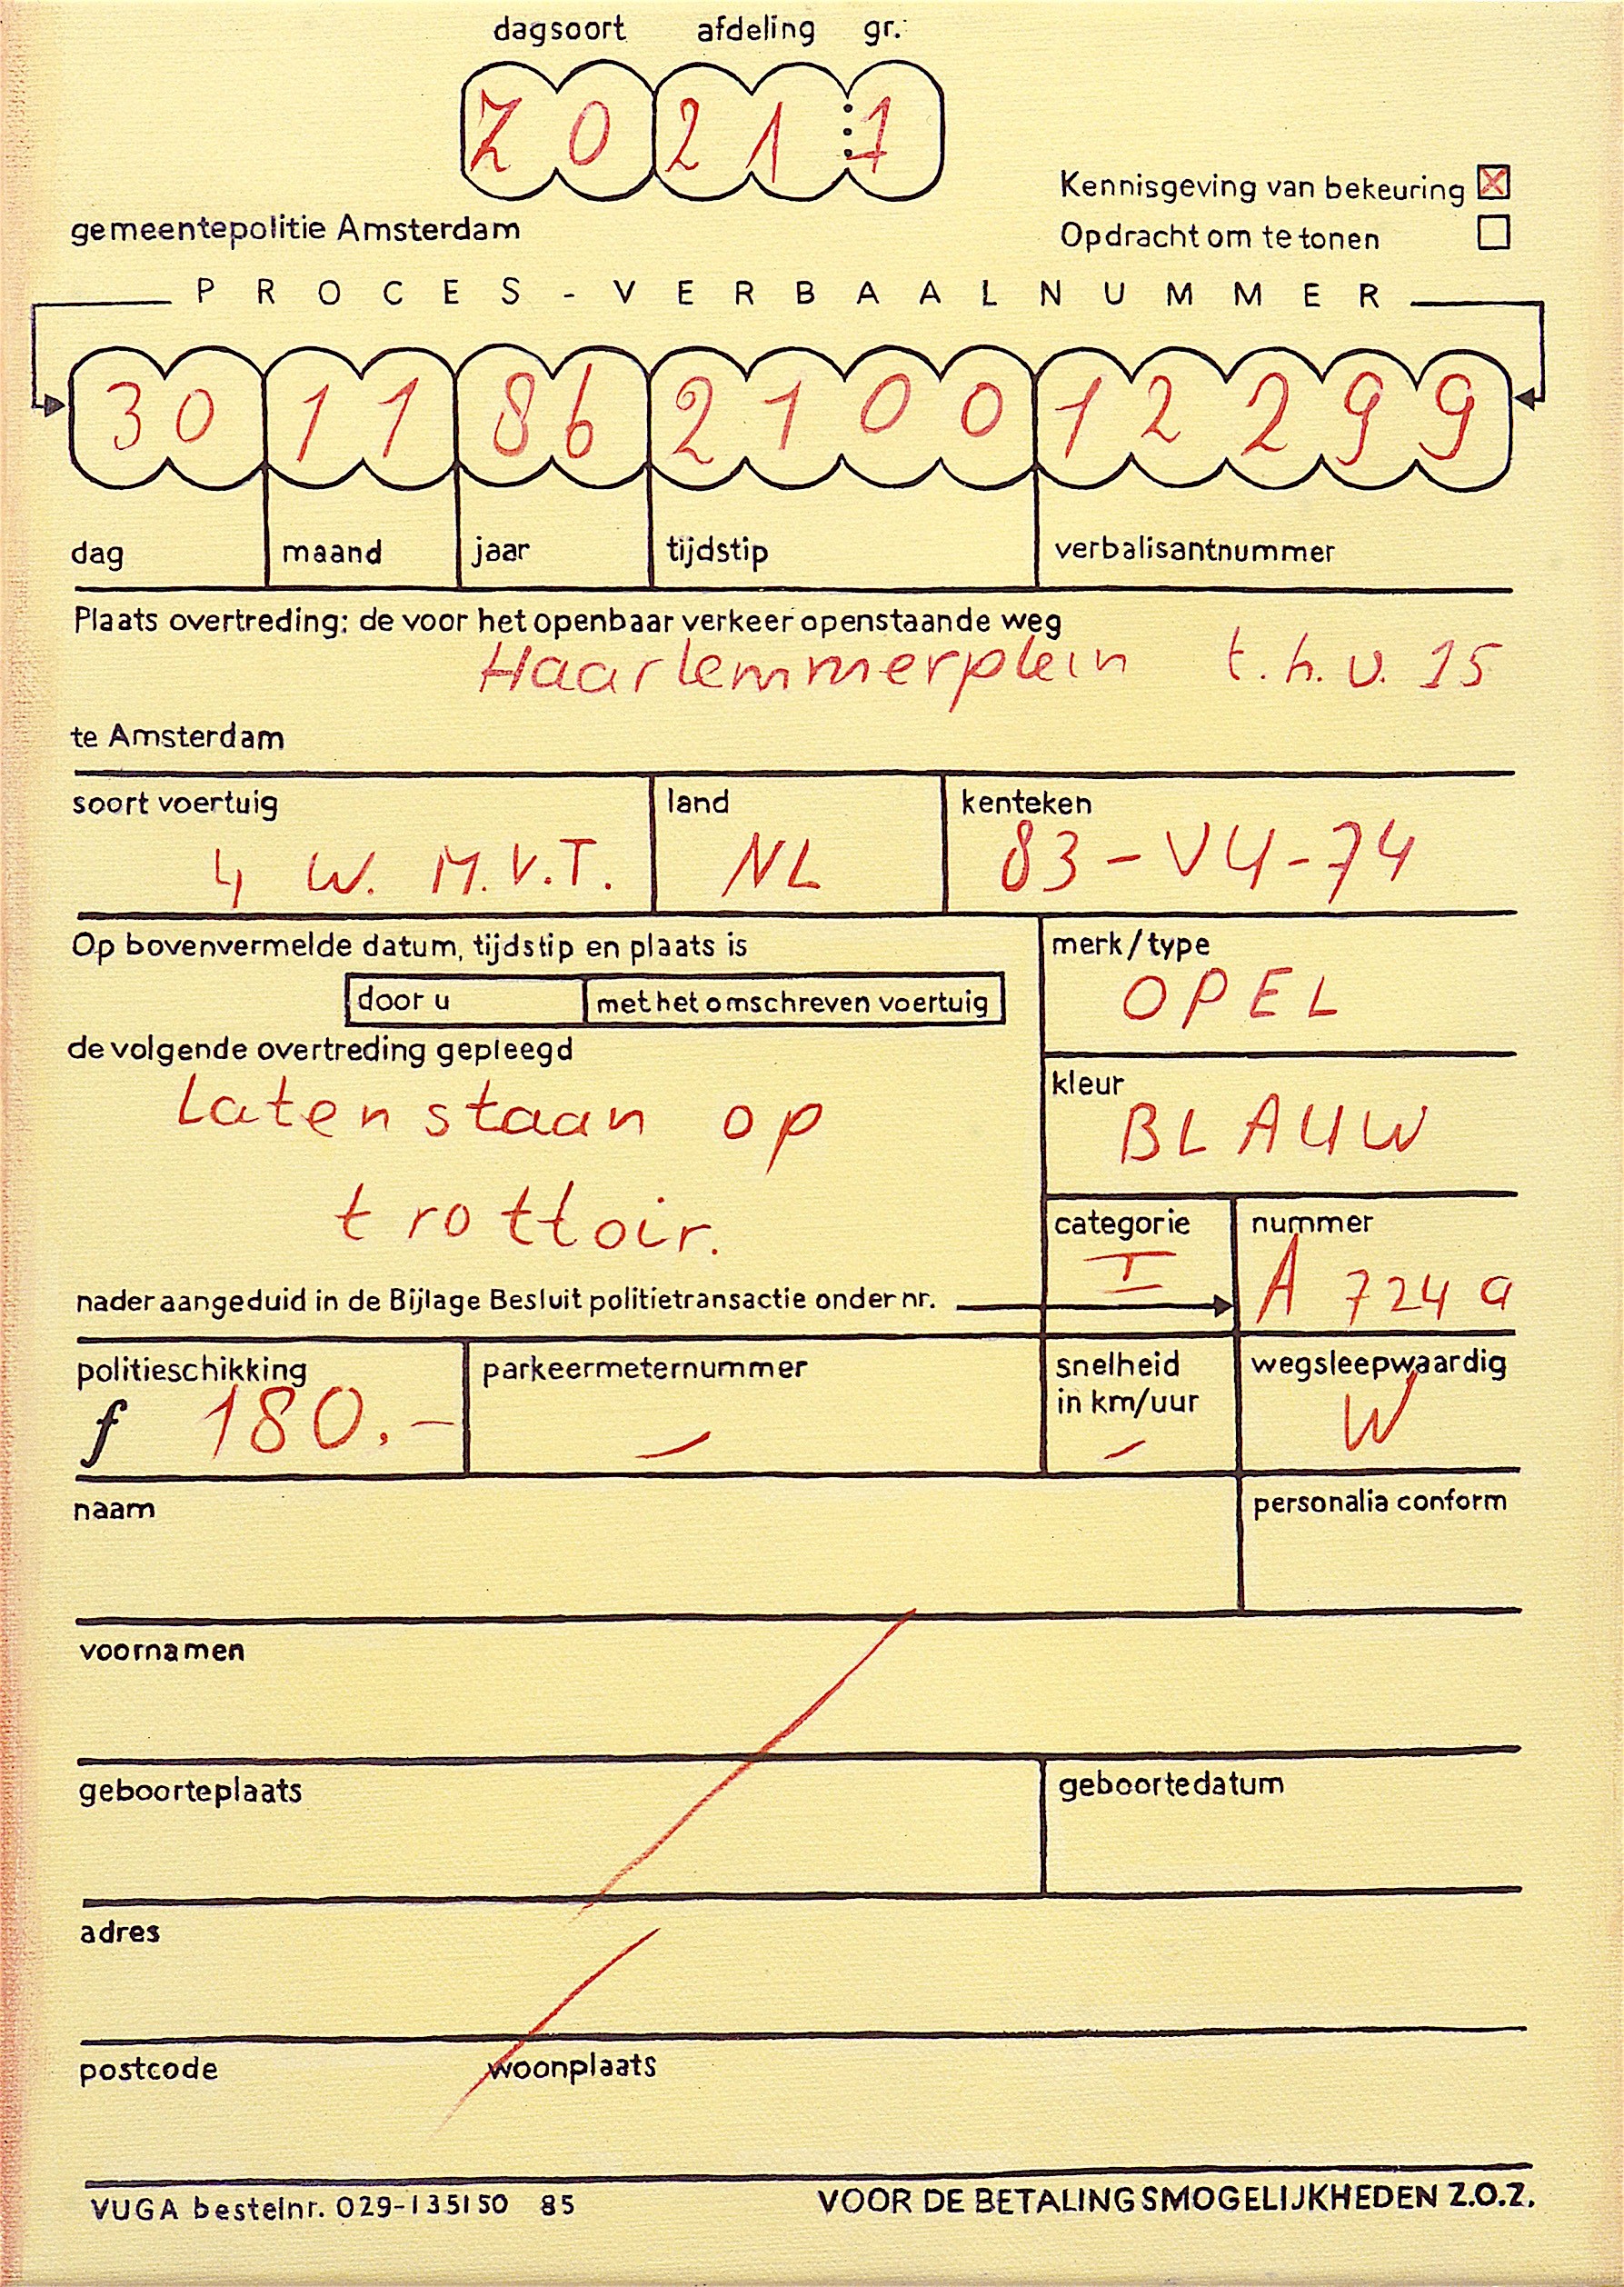 dagsoort afdeling gr.
Z 0 2 1 : 1
Kennisgeving van bekeuring X
gemeentepolitie Amsterdam
Opdracht om te tonen
PROCES-VERBAALNUMMER
30 11 86 2100 12299
dag maand jaar tijdstip verbalisantnummer
Plaats overtreding: de voor het openbaar verkeer openstaande weg
Haarlemmerplein t.h.v. 15
te Amsterdam
soort voertuig land kenteken
4 W. M.V.T. NL 83-VU-74
Op bovenvermelde datum, tijdstip en plaats is merk/type
door u met het omschreven voertuig OPEL
de volgende overtreding gepleegd
kleur
Laten staan op BLAUW
trottoir.
categorie nummer
nader aangeduid in de Bijlage Besluit politietransactie onder nr. I A 724 a
politieschikking parkeermeternummer snelheid in km/uur wegsleepwaardig
f 180.- - - W
naam personalia conform
voornamen
geboorteplaats geboortedatum
adres
postcode woonplaats
VUGA bestelnr. 029-135150 85 VOOR DE BETALINGSMOGELIJKHEDEN Z.O.Z.